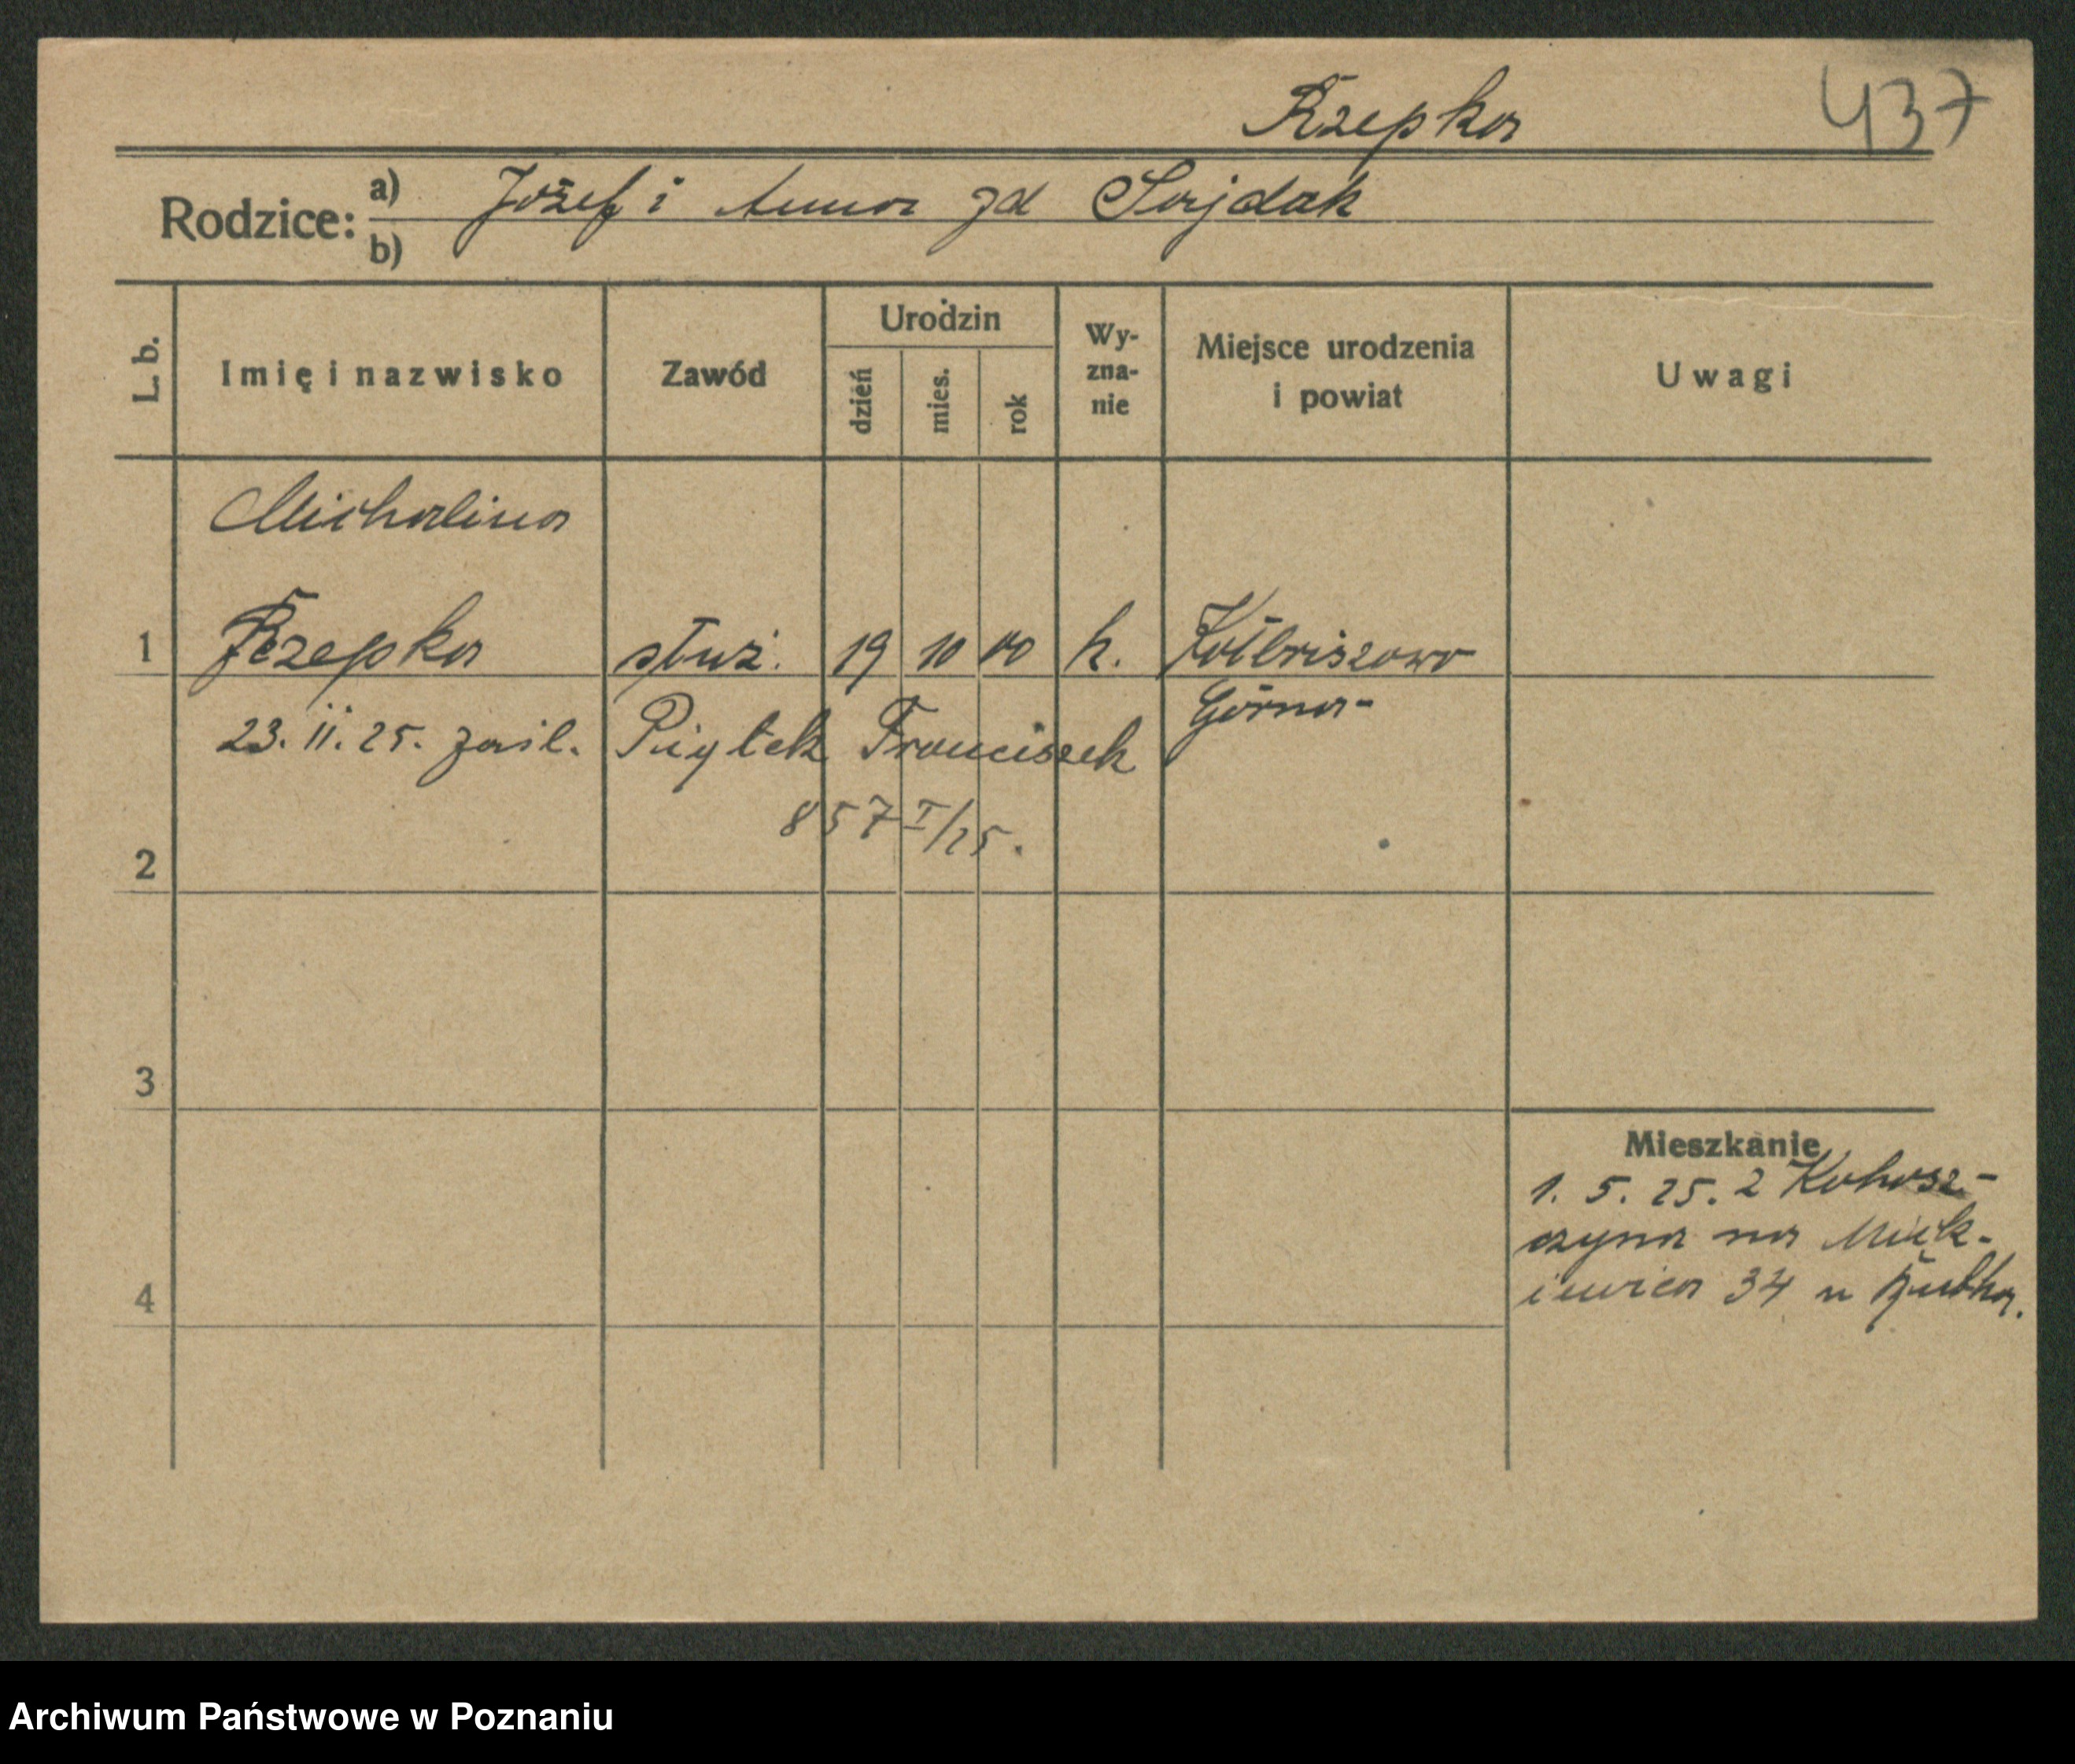 Rzepka 437
Rodzice: a) Józef i Anna zd Sojdak
b)
L. b. Imię i nazwisko Zawód Urodzin dzień mies. rok Wy-zna-nie Miejsce urodzenia i powiat Uwagi
Michalina
1 Rzepka służ. 19 10 00 k. Kołbriszowo
Górna-
23. 11. 25. zaśl. Piątek Franciszek
857 I/25.
2
3
Mieszkanie
1. 5. 25. z Kokosz-
czyna na Mick-
iewicza 34 u
4
Archiwum Państwowe w Poznaniu